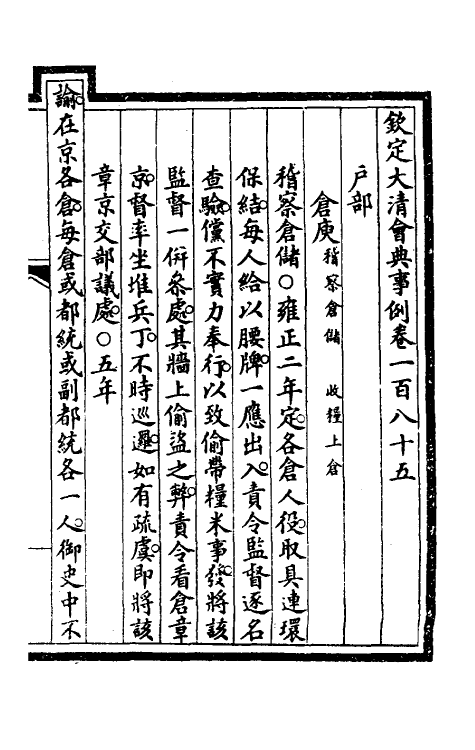 欽定大清會典事例卷一百八十五
戶部
倉庾 稽察倉儲 收糧上倉
稽察倉儲○雍正二年定。各倉人役。取具連環
保結。每人給以腰牌。一應出入。責令監督逐名
查驗。儻不實力奉行。以致偷帶糧米事發。將該
監督一併叅處。其牆上偷盜之弊。責令看倉章
京。督率坐堆兵丁。不時巡邏。如有疏虞。即將該
章京交部議處。○五年
諭。在京各倉。每倉或都統或副都統各一人。御史中不